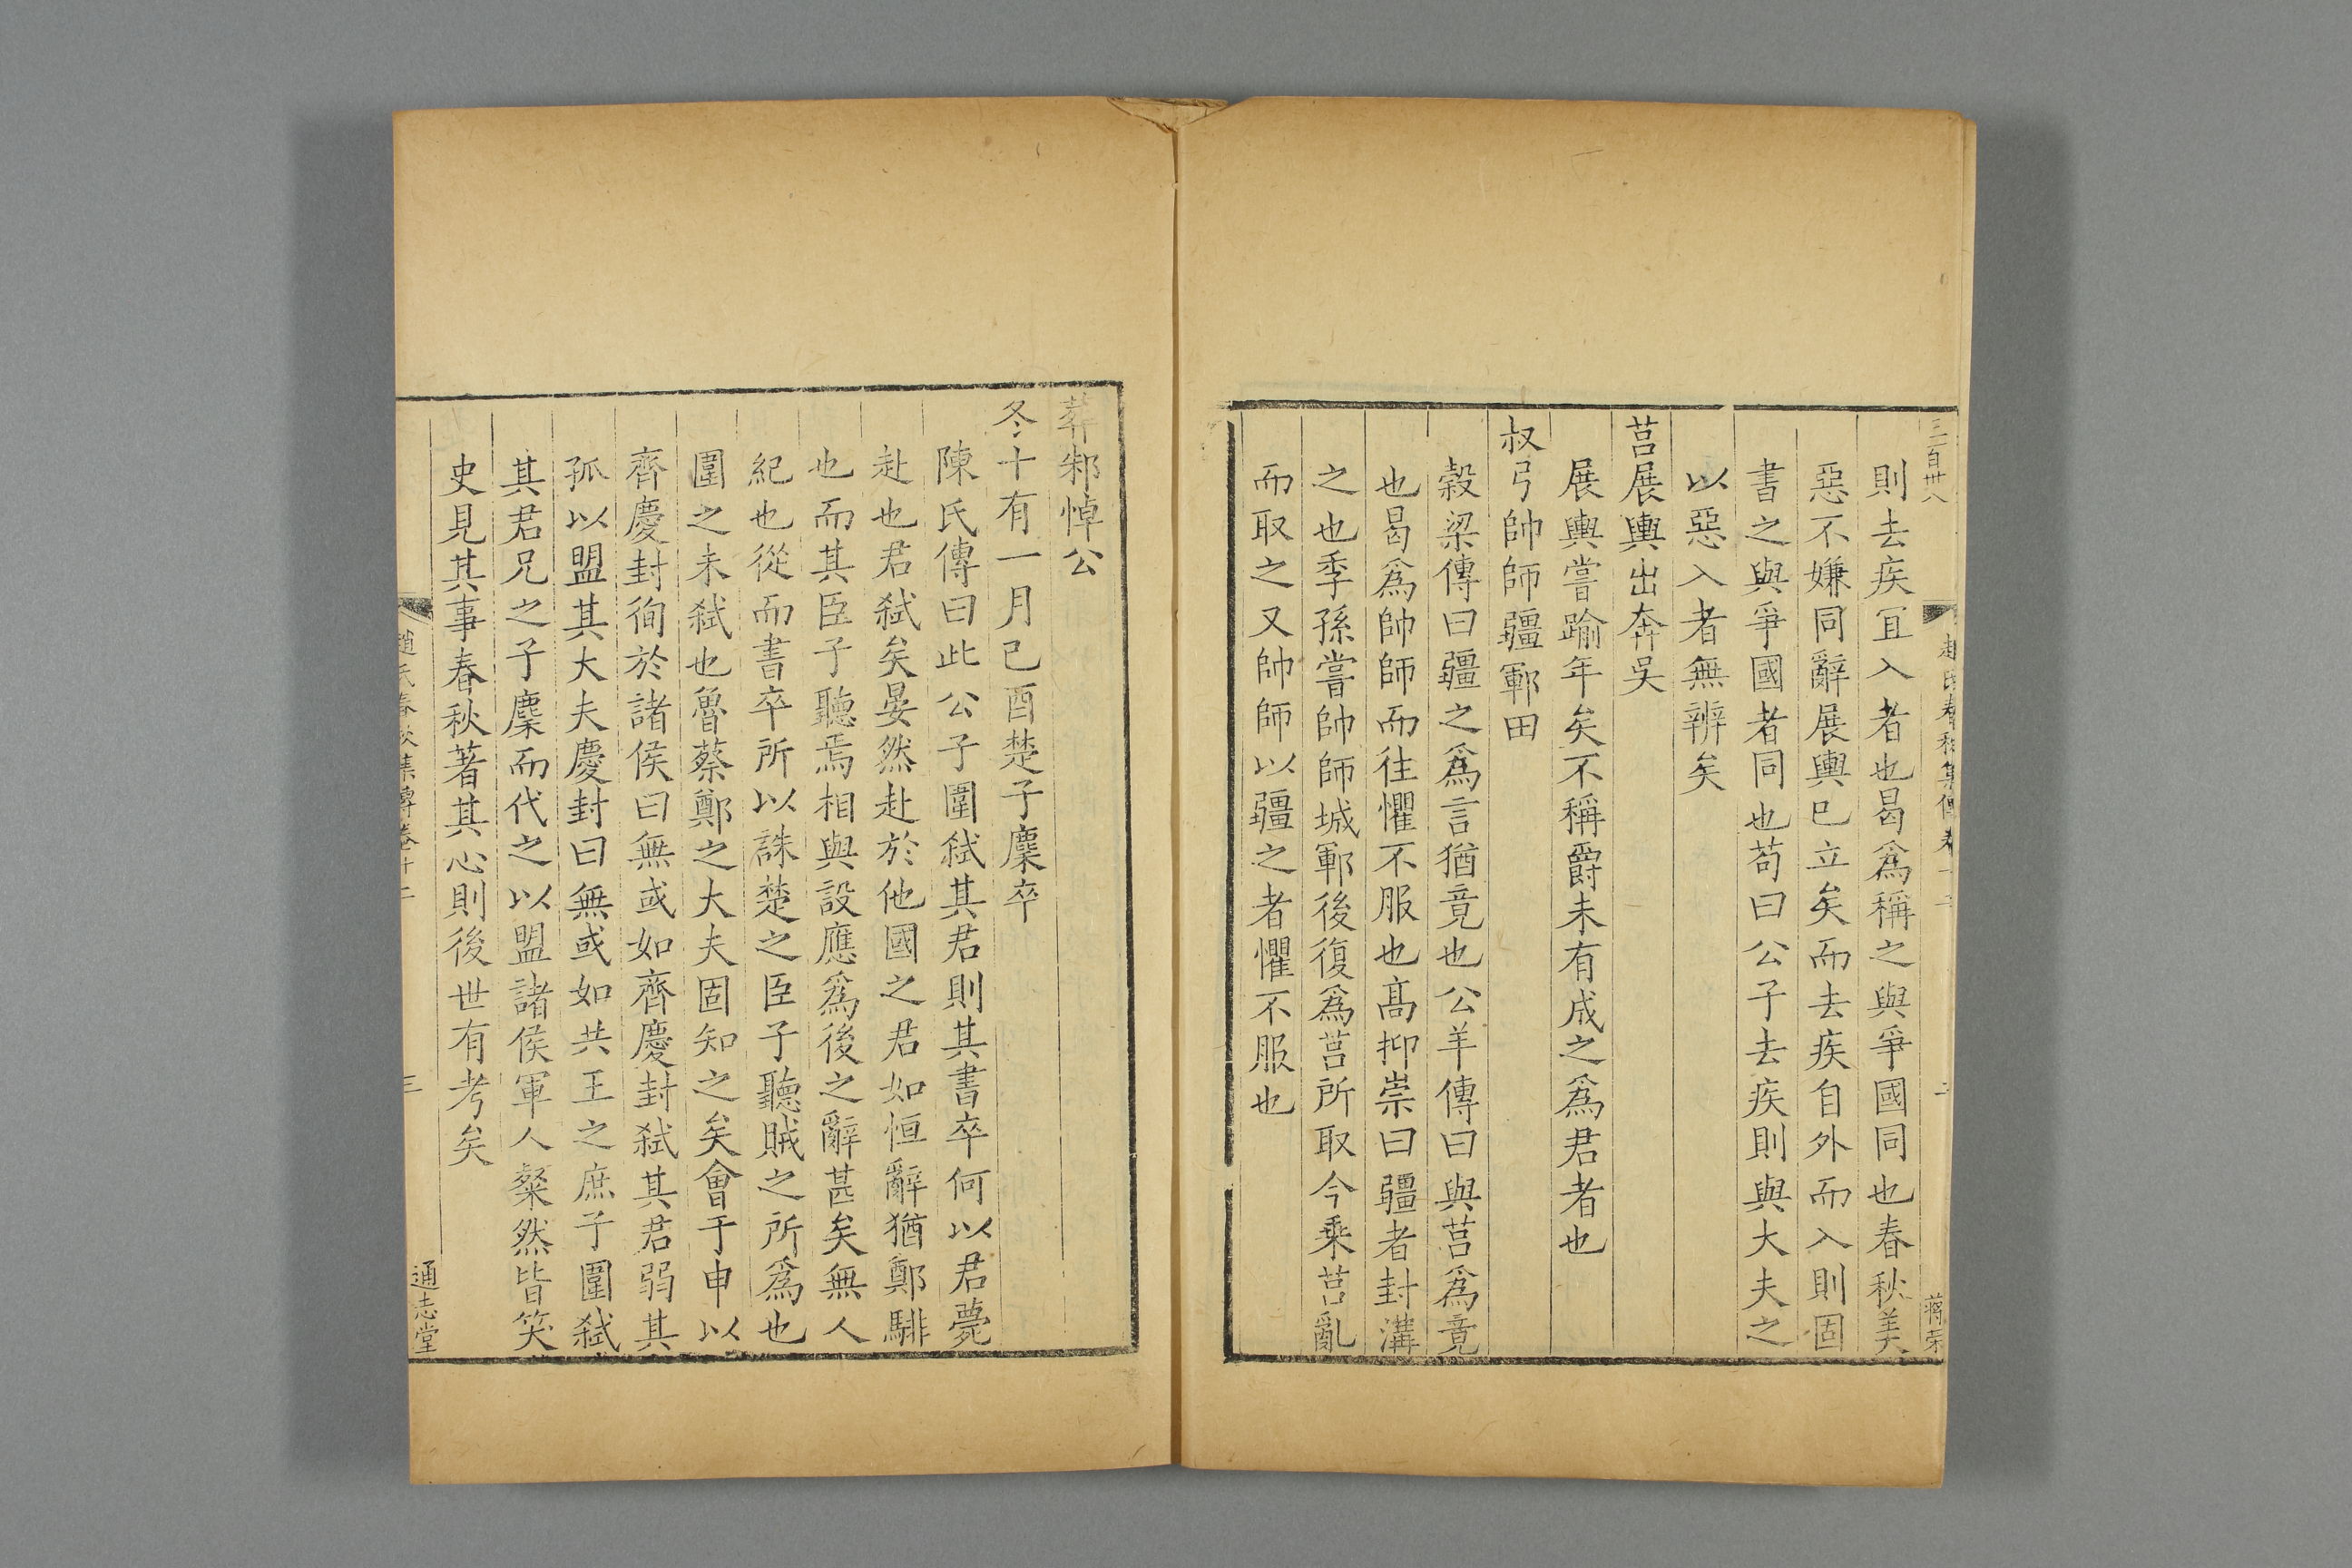 三百卅八
則去疾宜入者也曷爲稱之與爭國同也春秋美
惡不嫌同辭展輿已立矣而去疾自外而入則固
書之與爭國者同也苟曰公子去疾則與大夫之
以惡入者無辨矣
莒展輿出奔吳
展輿嘗踰年矣不稱爵未有成之爲君者也
叔弓帥師疆鄆田
穀梁傳曰疆之爲言猶竟也公羊傳曰與莒爲竟
也曷爲帥師而往懼不服也髙抑崇曰疆者封溝
之也季孫嘗帥師城鄆後復爲莒所取今乘莒亂
而取之又帥師以疆之者懼不服也
葬邾悼公
冬十有一月已酉楚子麇卒
陳氏傳曰此公子圍弑其君則其書卒何以君薨
赴也君弑矣晏然赴於他國之君如恒辭猶鄭騑
也而其臣子聽焉相與設應爲後之辭甚矣無人
紀也從而書卒所以誅楚之臣子聽賊之所爲也
圍之未弑也魯蔡鄭之大夫固知之矣會于申以
齊慶封徇於諸侯曰無或如齊慶封弑其君弱其
孤以盟其大夫慶封曰無或如共王之庶子圍弑
其君兄之子麇而代之以盟諸侯軍人粲然皆笑
史見其事春秋著其心則後世有考矣
趙氏春秋集傳卷十二
三
通志堂